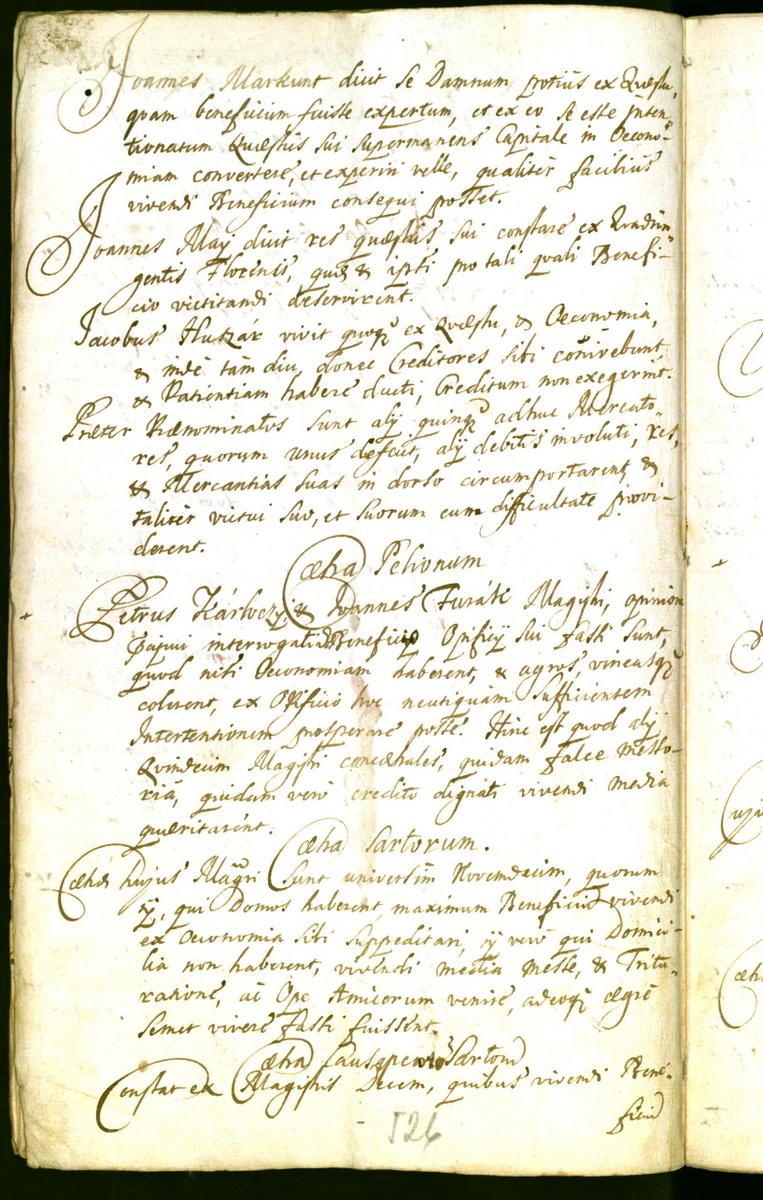 Joannes Markunt dicit se Damnum potius ex Quæstu,
quam beneficium fuisse expertum, et ex eo se esse Inten-
tionatum Quæstus sui supermanens Capitale in Oecono-
miam convertere, et experiri velle, qualiter facilius
vivendi Beneficium consequi posset.
Joannes May dicit res quæstus sui constare ex Quadrin
gentis Florenis, quæ & ipsi pro tali quali Benefi-
cio victitandi deservirent.
Jacobus Huszár vivit quoq; ex Quæstu, & Oeconomia,
& inde tam diu, donec Creditores sibi connivebunt
& Patientiam habere ducti, Creditum non exegerint.
Præter Prænominatos sunt alij quinq; adhuc Mercato-
res, quorum unus defecit, alij debitis involuti, res,
& Mercantias suas in dorso circumportarent, &
taliter victui suo, et suorum cum difficultate provi-
derent.
Cæha Pelionum
Petrus Kárloczy, & Joannes Turák Magistri, opinione
Papui interrogati Beneficio Opificij sui fassi sunt,
quod nisi Oeconomiam haberent, & agros, vineasq;
colerent, ex Opificio hoc neutiquam sufficientem
Intertentionem prosperare posse. Hinc est quod alij
Quindecim Magistri concæhales, quidam falce messo-
ria, quidam vero credito dignati vivendi media
quæritarent.
Cæha Sartorum.
Cæhæ hujus Magri sunt universim Novemdecim, quorum
ij, qui Domos haberent, maximum Beneficium vivendi
ex Oeconomia sibi suppeditari, ij vero qui Domici-
lia non haberent, vivendi media Messe, & Tritu-
ratione, ac Ope Amicorum venire, adeoq; ægre
semet vivere fassi fuissent.
Cæha Sartorum
Constat ex Magistris Decem, quibus vivendi Bene-
ficium
526